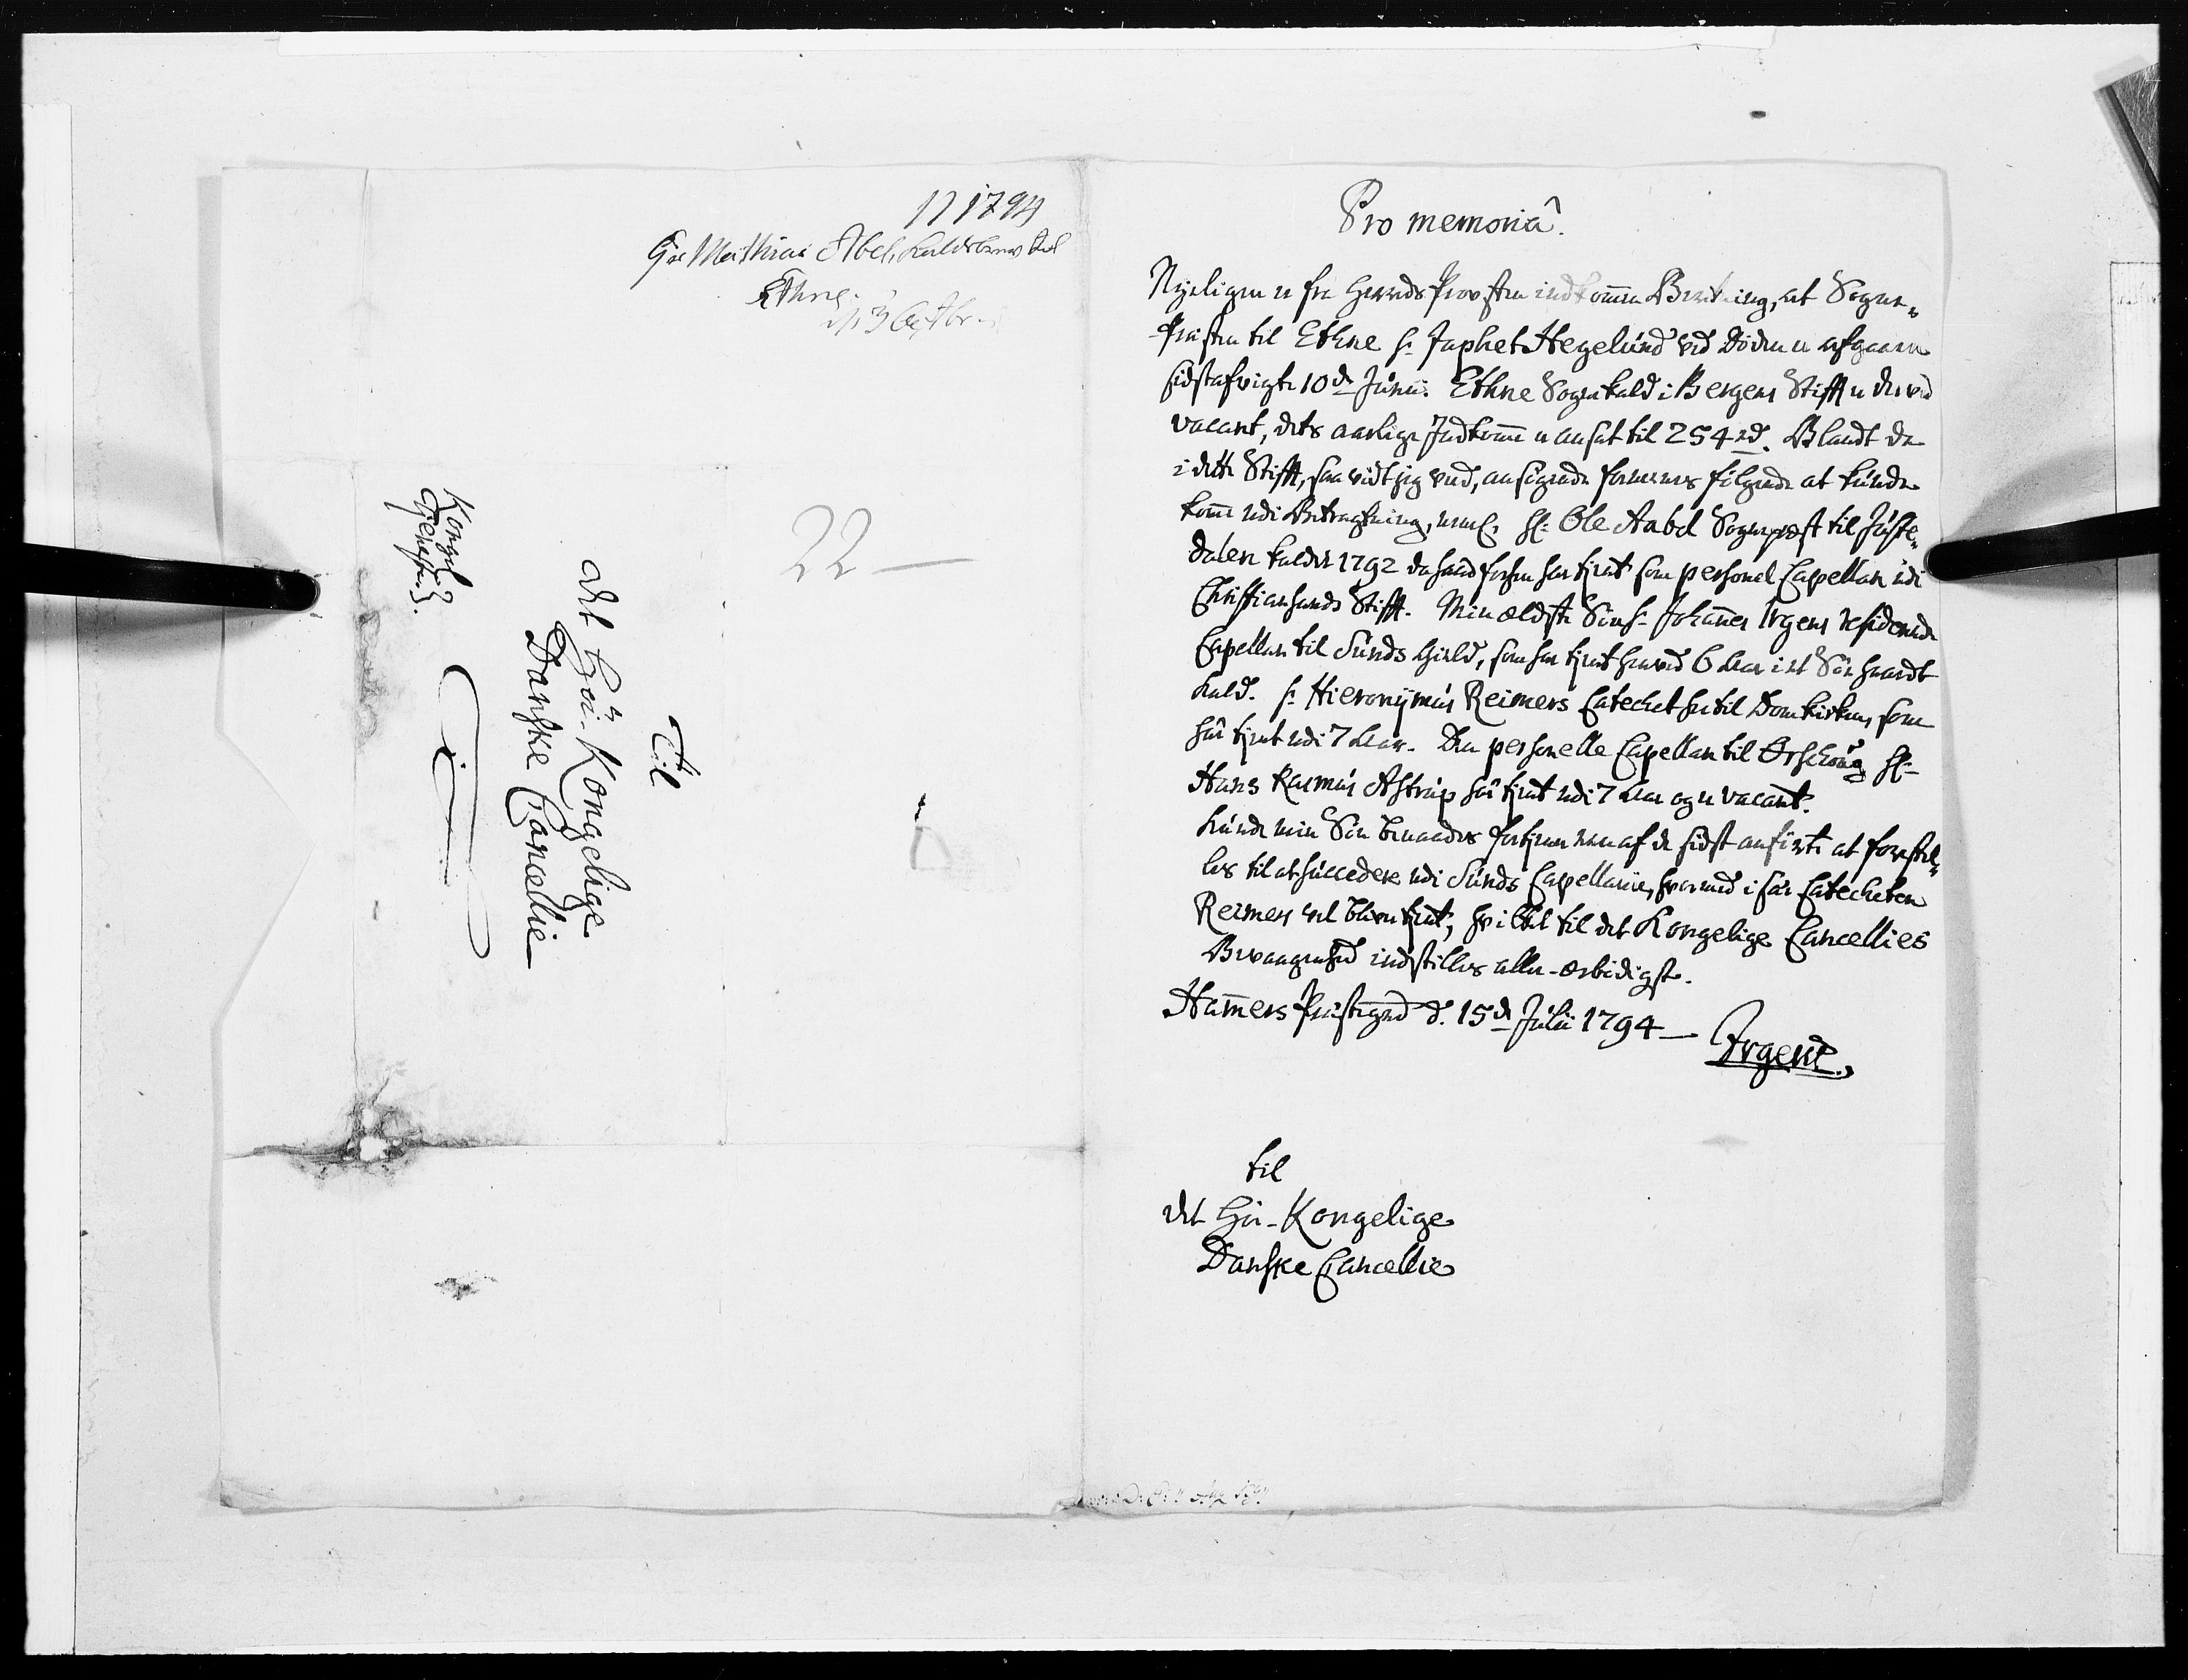 1794
Mathias Abel, kaldes
Ethne
3 Octbr
22 —
Til
det Høi-Kongelige
Danske Cancellie
Kongel:
Tjeneste
Pro memoria.
Nyeligen er fra HerredsProvsten indkommen Beretning, at Sogne-
Præsten til Ethne Hr Japhet Hegelund ved Døden er afgaaen
sidstafvigte 10de Junii. Ethne Sognekald i Bergens Stift er derved
vacant, dets aarlige Indkomme er ansat til 254 rd. Blandt de
i dette Stift, saa vidt jeg veed, ansøgende formenes følgende at kunde
komme udi Betragtning, neml. Hr: Ole Aabel Sognepræst til Juste-
dalen kaldet 1792 da hand forhen har tjent som personel Capellan udi
Christiansands Stift. Min ældste Søn Hr Johannes Irgens residerende
Capellan til Sunds Gield, som har tjent herved 6 Aar i et Søe haardt
Kald. Hr Hieronymus Reimers Catechet her til Domkirken, som
har tjent udi 7 Aar. Den personelle Capellan til Ørschoug Hr:
Hans Rasmus Astrup har tjent udi 7 Aar og er vacant.
Kunde min Søn benaades fortjener een af de sidst anførte at forestil-
les til at succedere udi Sunds Capellanie, hvormed i sær Catecheten
Reimers vel bliver tjent, hvilket til det Kongelige Cancellies
Bevaagenhed indstilles aller-ærbødigst.
Hammers Præstegaard d. 15de Julii 1794 —
Irgens.
til
det Høi-Kongelige
Danske Cancellie